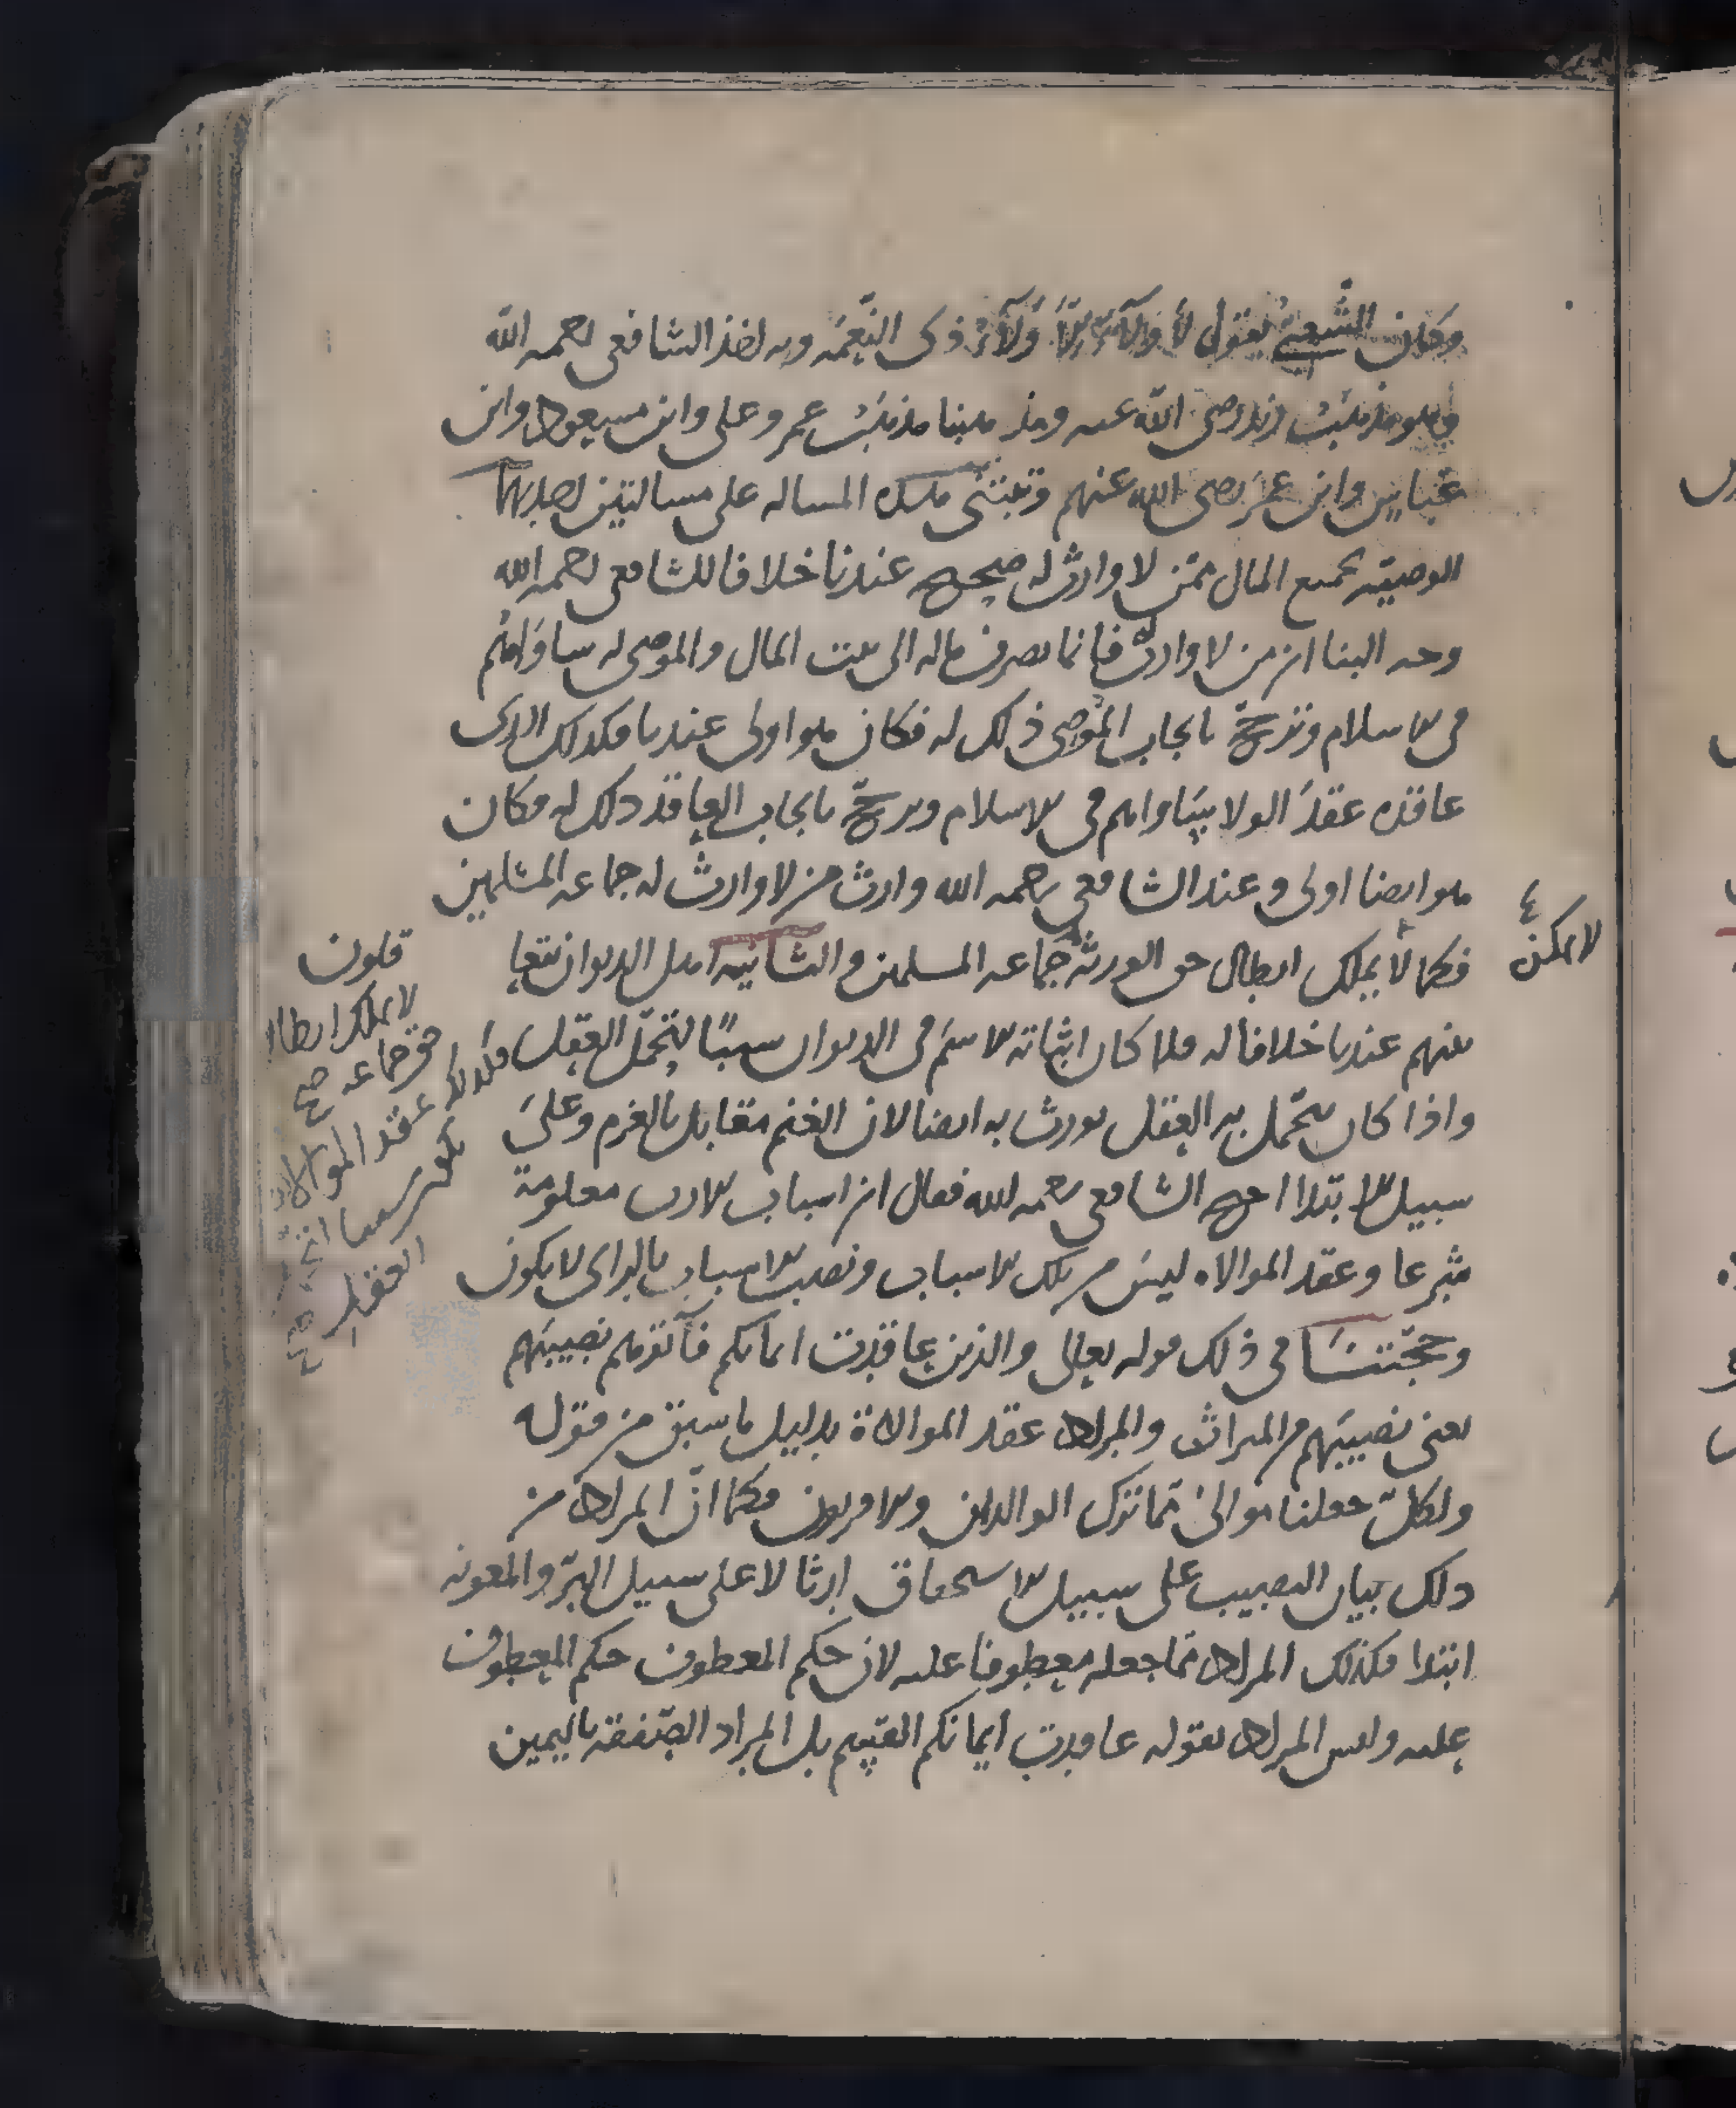 وكان الشعبي يقول لا ولاء الا ولاء ذى النعمه وبه اخذ الشافعى رحمه الله
وهو مذهب زيد رضى الله عنه ومذهبنا مذهب عمر وعلى وابن مسعود وابن
عباس وابن عمر رضى الله عنهم وتبتنى هذه المساله على مسالتين احديهما
الوصية بجميع المال ممن لا وارث له صحيح عندنا خلافا للشافعى رحمه الله
وجه البنا ان من لا وارث له فانما يصرف ماله الى بيت المال والموصى له ساواهم
فى الاسلام وترجح بايجاب الموصى ذلك له فكان هو اولى عندنا فكذلك الذى
عاقده عقد الولا يساواهم فى الاسلام وترجح بايجاب العاقد ذلك له فكان
هو ايضا اولى وعند الشافعى رحمه الله وارث من لا وارث له جماعه المسلمين
فكما لا يملك ابطال حق الورثة جماعه المسلمين والثانيه اهل الديوان يتعا
منهم عندنا خلافا له فلما كان اثباته الاسم فى الديوان سببا لتحمل العقل
واذا كان يتحمل به العقل يورث به ايضا لان الغنم مقابل بالغرم وعلى
سبيل الابتدا احتج الشافعى رحمه الله فقال ان اسباب الارث معلومة
شرعا وعقد الموالاه ليس من تلك الاسباب ونصب الاسباب بالراى لا يكون
وحجتنا فى ذلك قوله تعالى والذين عاقدت ايمانكم فآتوهم نصيبهم
يعنى نصيبهم من الميراث والمراد عقد الموالاة بدليل ما سبق من قوله
ولكل جعلنا موالى مما ترك الوالدان والاقربون فكما ان المراد من
ذلك بيان النصيب على سبيل الاستحقاق ارثا لا على سبيل البر والمعونه
ابتدا فكذلك المراد مما جعله معطوفا عليه لان حكم المعطوف حكم المعطوف
عليه وليس المراد بقوله عاقدت ايمانكم القسم بل المراد الصفقة باليمين
لا يمكن
لا يملك ابطال
حق جماعه صح
فكذلك عقد الموالاة
العقل